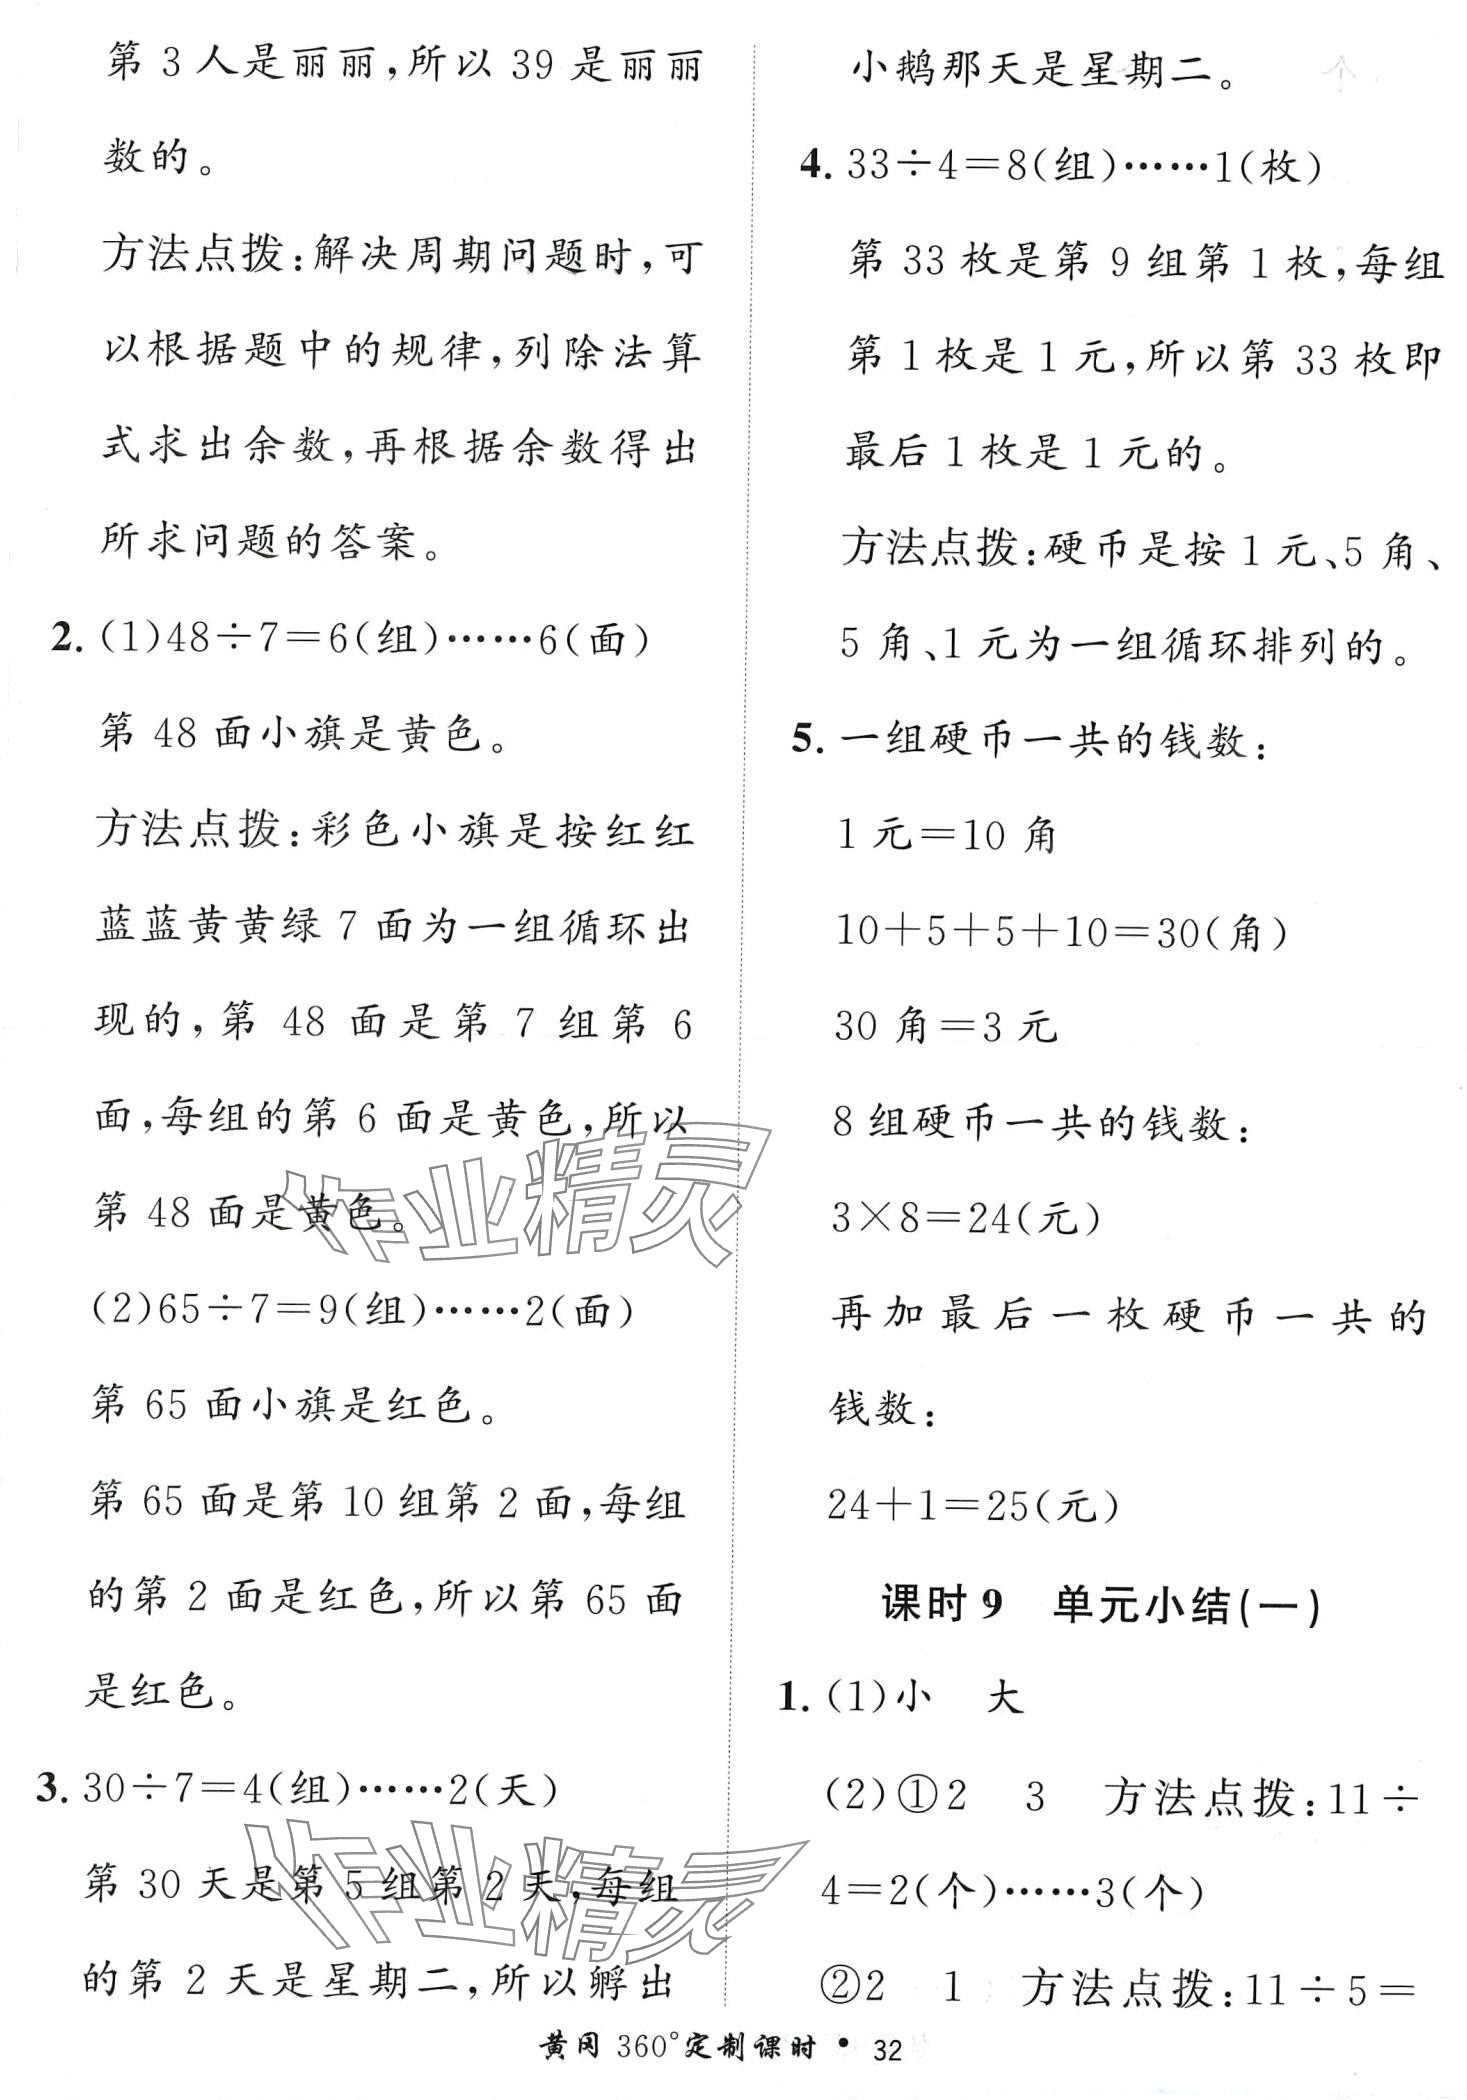 第3人是丽丽,所以39是丽丽
数的。
方法点拨:解决周期问题时,可
以根据题中的规律,列除法算
式求出余数,再根据余数得出
所求问题的答案。
2. (1)48÷7=6(组)……6(面)
第48面小旗是黄色。
方法点拨:彩色小旗是按红红
蓝蓝黄黄绿7面为一组循环出
现的,第48面是第7组第6
面,每组的第6面是黄色,所以
第48面是黄色。
(2)65÷7=9(组)……2(面)
第65面小旗是红色。
第65面是第10组第2面,每组
的第2面是红色,所以第65面
是红色。
3. 30÷7=4(组)……2(天)
第30天是第5组第2天,每组
的第2天是星期二,所以孵出
小鹅那天是星期二。
4. 33÷4=8(组)……1(枚)
第33枚是第9组第1枚,每组
第1枚是1元,所以第33枚即
最后1枚是1元的。
方法点拨:硬币是按1元、5角、
5角、1元为一组循环排列的。
5. 一组硬币一共的钱数:
1元=10角
10+5+5+10=30(角)
30角=3元
8组硬币一共的钱数:
3×8=24(元)
再加最后一枚硬币一共的
钱数:
24+1=25(元)
课时9 单元小结(一)
1. (1)小 大
(2)①2 3 方法点拨:11÷
4=2(个)……3(个)
②2 1 方法点拨:11÷5=
黄冈360°定制课时 • 32
作业精灵
作业精灵